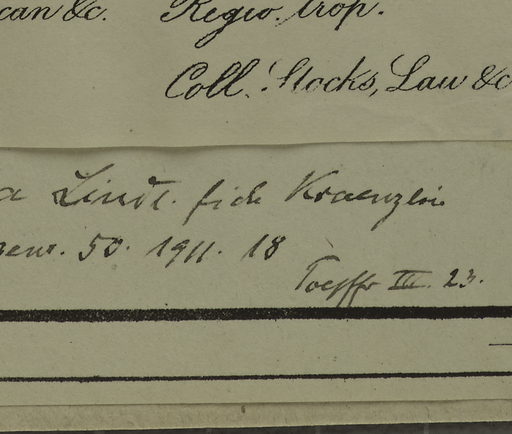 can &c. Regio. trop.
Coll. Stocks, Law &c
a Lindl. fide Kraenzlin
50. 1911. 18
III. 23.